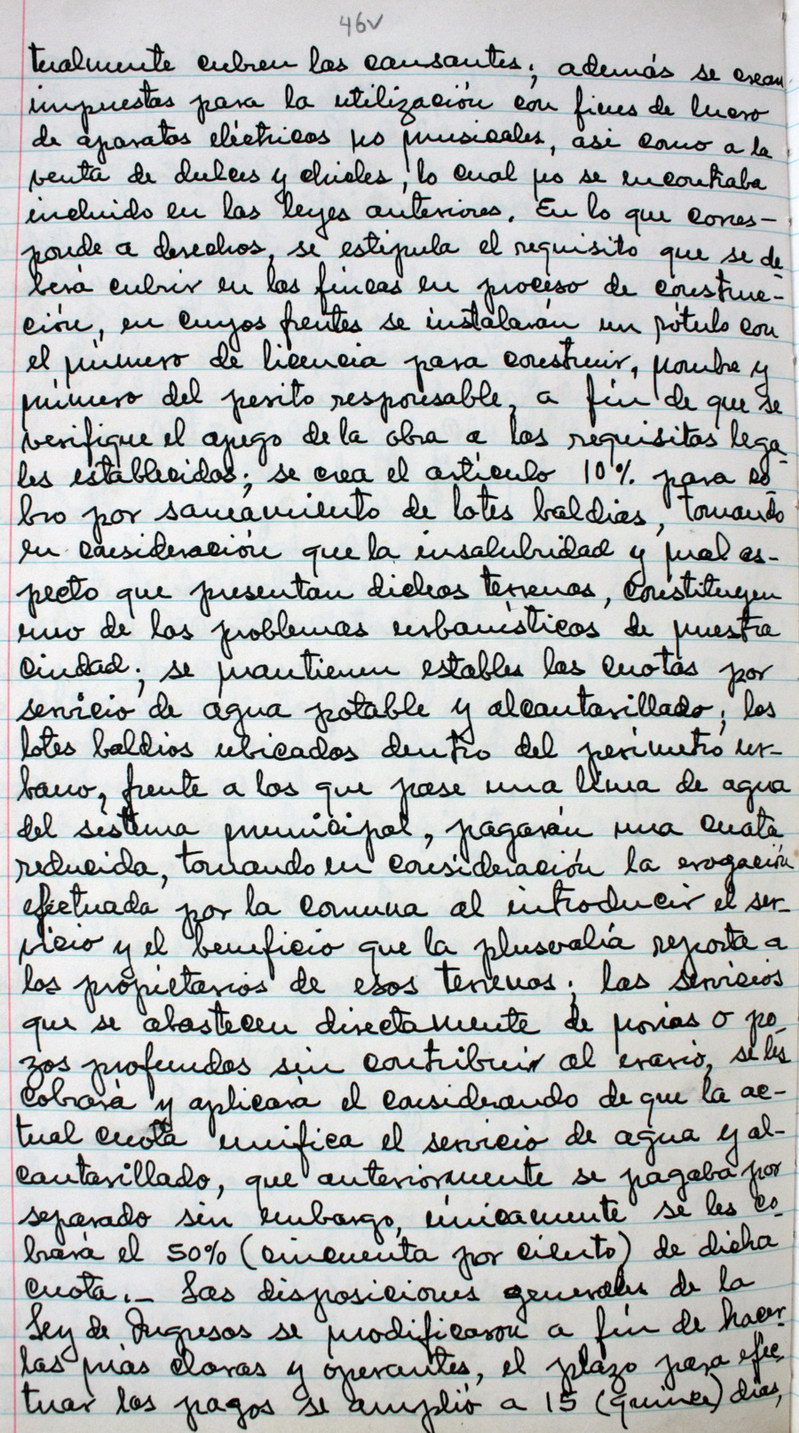 46v
tualmente cubren los causantes; además se crean
impuestos para la utilización con fines de lucro
de aparatos eléctricos no musicales, asi como a la
venta de dulces y chicles, lo cual no se encontraba
incluido en las leyes anteriores. En lo que corres-
ponde a derechos, se estipula el requisito que se de-
berá cubrir en las fincas en proceso de construc-
ción, en cuyos frentes se instalarán un rótulo con
el número de licencia para construir, nombre y
número del perito responsable, a fin de que se
verifique el apego de la obra a los requisitos lega-
les establecidos; se crea el artículo 10% para co-
bro por saneamiento de lotes baldios, tomando
en consideración que la insalubridad y mal as-
pecto que presentan dichos terrenos, constituyen
uno de los problemas urbanísticos de nuestra
ciudad; se mantienen estables las cuotas por
servicio de agua potable y alcantarillado; los
lotes baldios ubicados dentro del perimetro ur-
bano, frente a los que pase una línea de agua
del sistema municipal, pagarán una cuota
reducida, tomando en consideración la erogación
efectuada por la comuna al introducir el ser-
vicio y el beneficio que la plusvalía reporta a
los propietarios de esos terrenos; los servicios
que se abastecen directamente de norias o po-
zos profundos sin contribuir al erario, se les
cobrará y aplicará el considerando de que la ac-
tual cuota unifica el servicio de agua y al-
cantarillado, que anteriormente se pagaba por
separado sin embargo, únicamente se les co-
brará el 50% (cincuenta por ciento) de dicha
cuota.- Las disposiciones generales de la
Ley de Ingresos se modificaron a fin de hacer
las más claras y operantes, el plazo para efec
tuar los pagos se amplió a 15 (quince) dias,